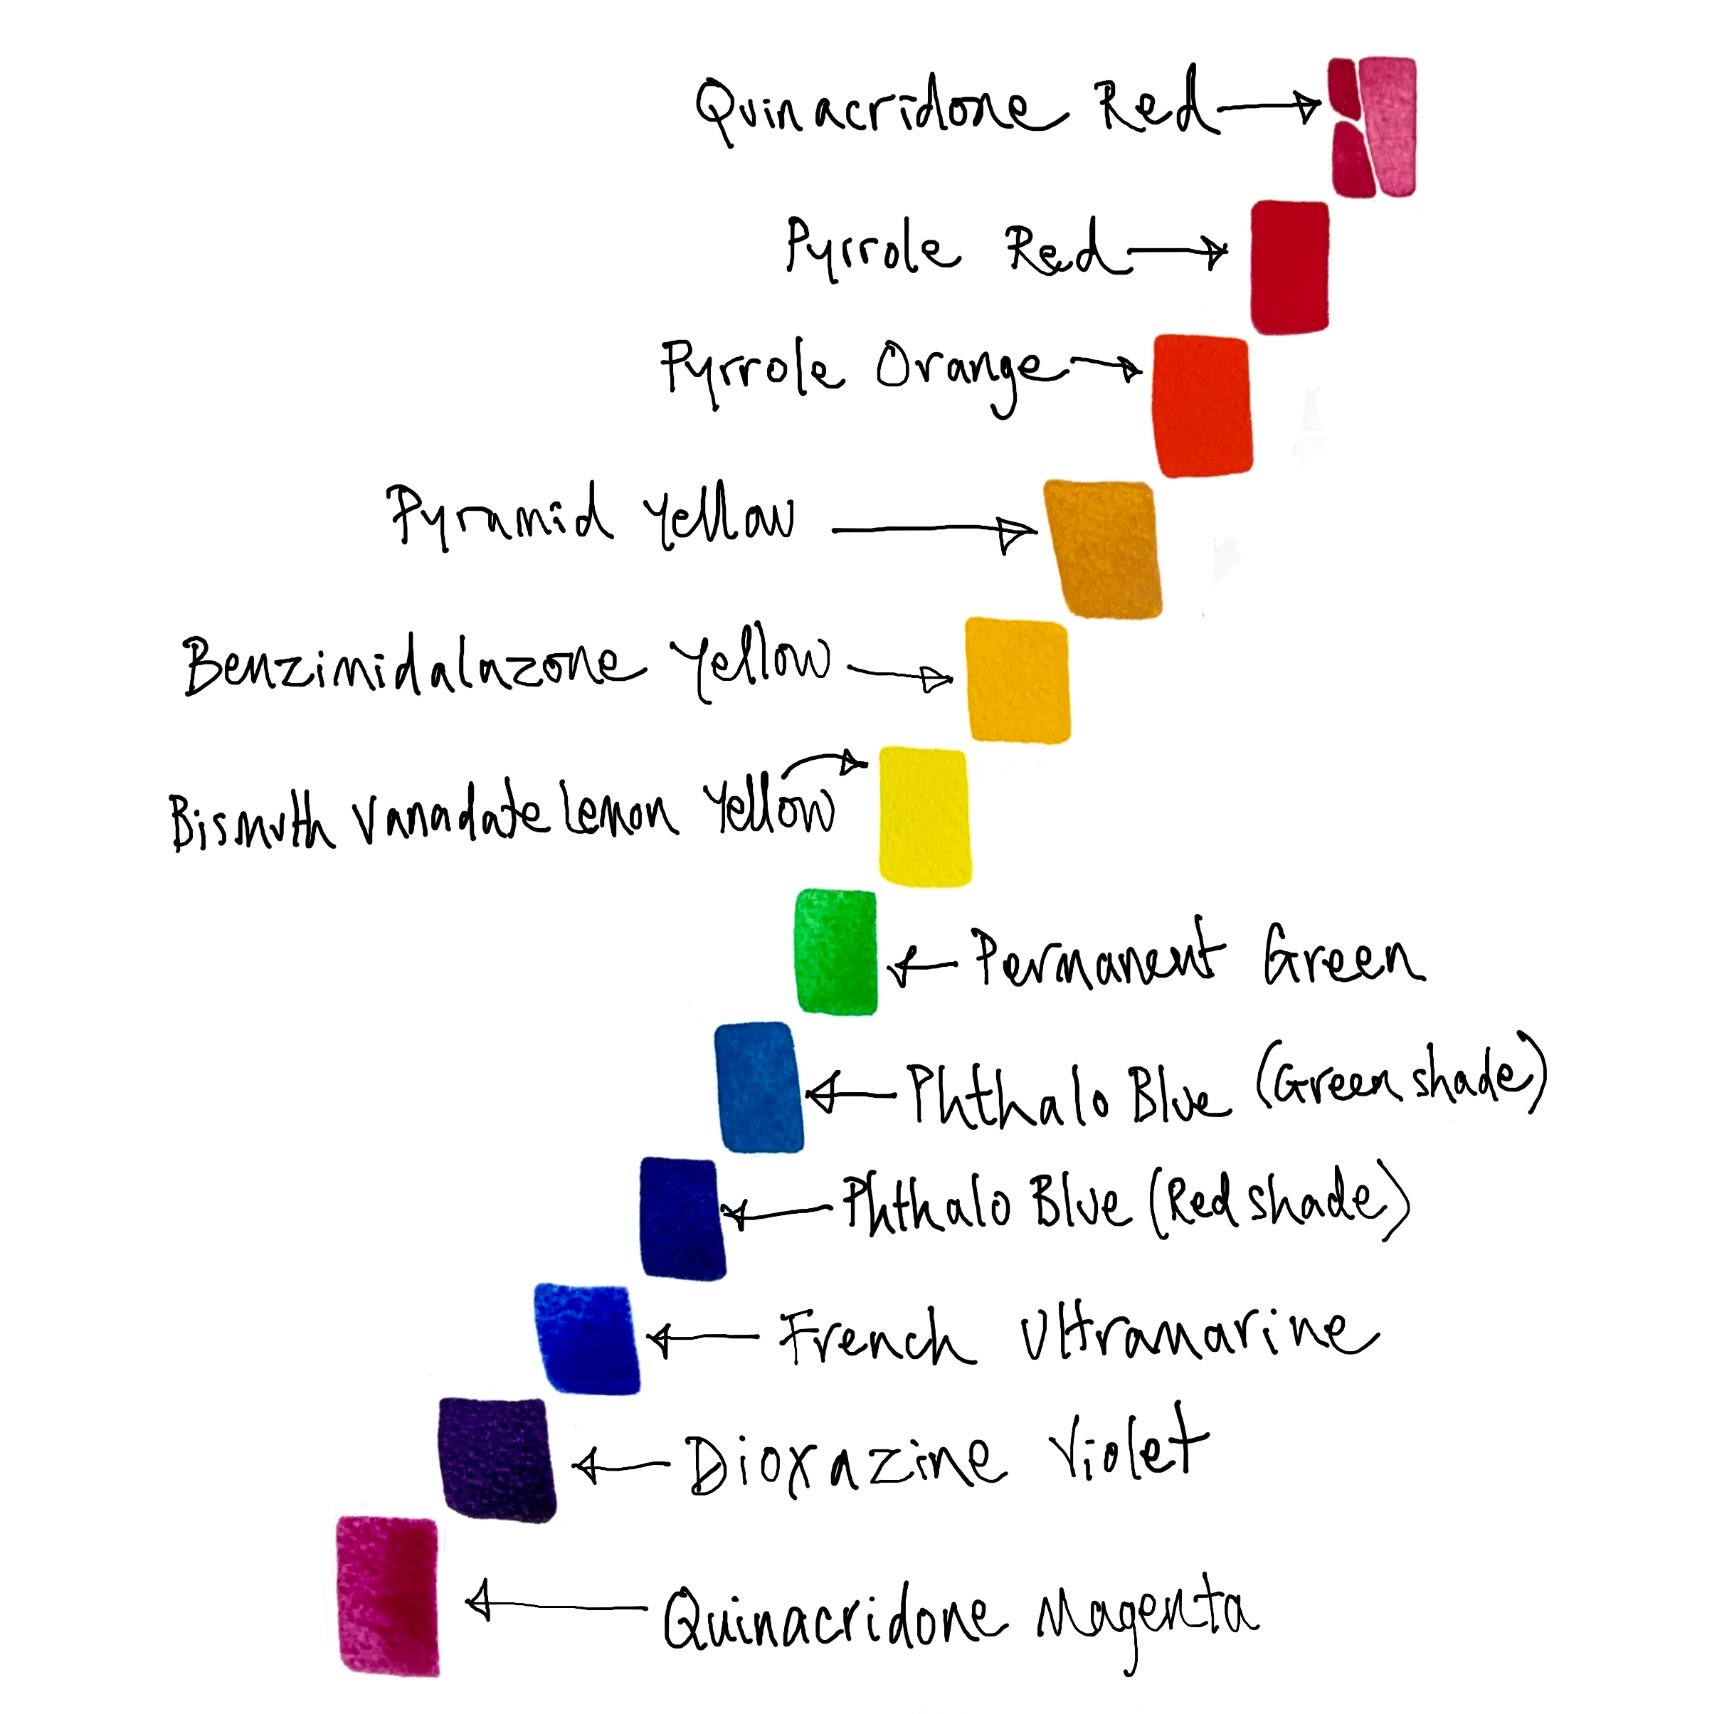 Quinacridone Red
Pyrrole Red
Pyrrole Orange
Pyramid Yellow
Benzimidalazone Yellow
Bismuth Vanadate Lemon Yellow
Permanent Green
Phthalo Blue (Green shade)
Phthalo Blue (Red shade)
French Ultramarine
Dioxazine Violet
Quinacridone Magenta